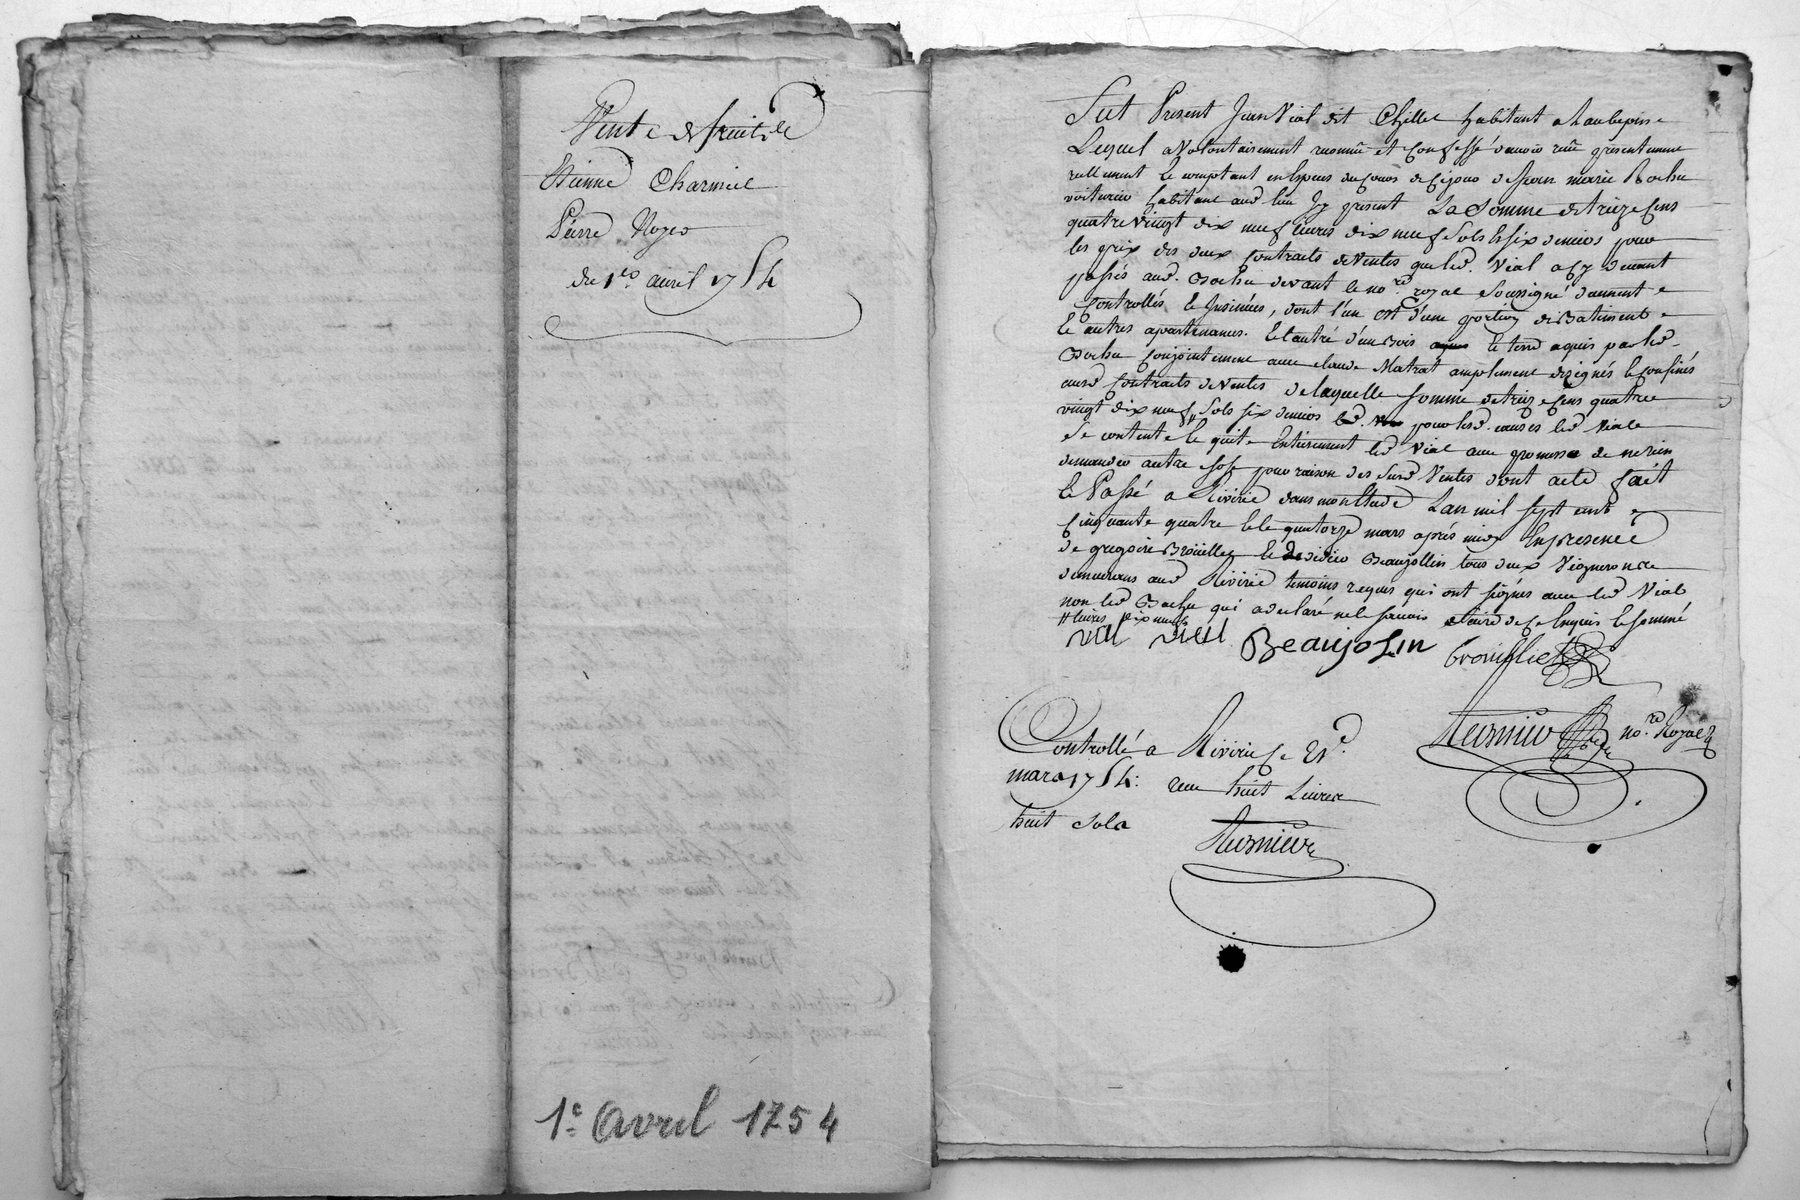 Vente de fruits de
Etienne Charmiel
Pierre Noyer
du 1er. avril 1754
1e. Avril 1754
Fut Present Jean Vial dit Chillet habitant a Laubepin
Lequel a Volontairement reconnu et Confessé davoir reçu presentement
reellement le comptant en Especes du cours de ce jour de Jean marie Bochu
voiturier habitant aud. lieu Icy present La Somme de treize Cens
quatre Vingt dix neuf livres dix neuf Sols Et six deniers pour
les prix des deux Contrats de Ventes que led. Vial a Cy devant
passés aud. Bochu devant le nore. royal Soussigné duement
Controllés Et Insinués, dont l'un est d'une portion de Batiment
Et autres apartenances. Et l'autre d'un Bois Et terre aquis par led.
Bochu Conjointement avec claude Matrat amplement designés Et Confinés
ausd. Contrats de Ventes de laquelle somme de treize Cens quatre
vingt dix neuf Sols six deniers pour lesd. causes led. Vial
Se contente Et quite Entierement led. avec promesse de ne rien
demander autre chose pour raison des Susd. Ventes dont acte fait
Et Passé a Riverie dans mon Etude Lan mil sept cents
Cinquante quatre Et le quatorze mars après midy En presence
de gregoire Broüillet Et didier Beaujollin tous deux Vignerons
demeurans aud. Riverie temoins requis qui ont signés avec led. Vial
non led. Bochu qui a declaré ne le savoir faire de Ce Enquis Et sommé
# livres dix neuf
vial Beaujolin brouillet
Controllé a Riverie le 21e.
mars 1754. reçu huit Livres
huit sols
nore. Royal